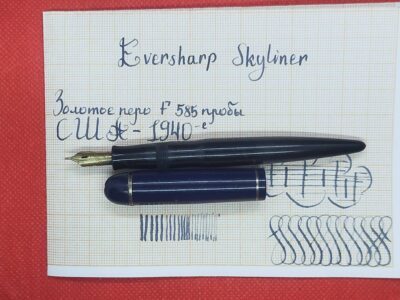 Eversharp Skyliner
Золотое перо F 585 пробы
США - 1940-е